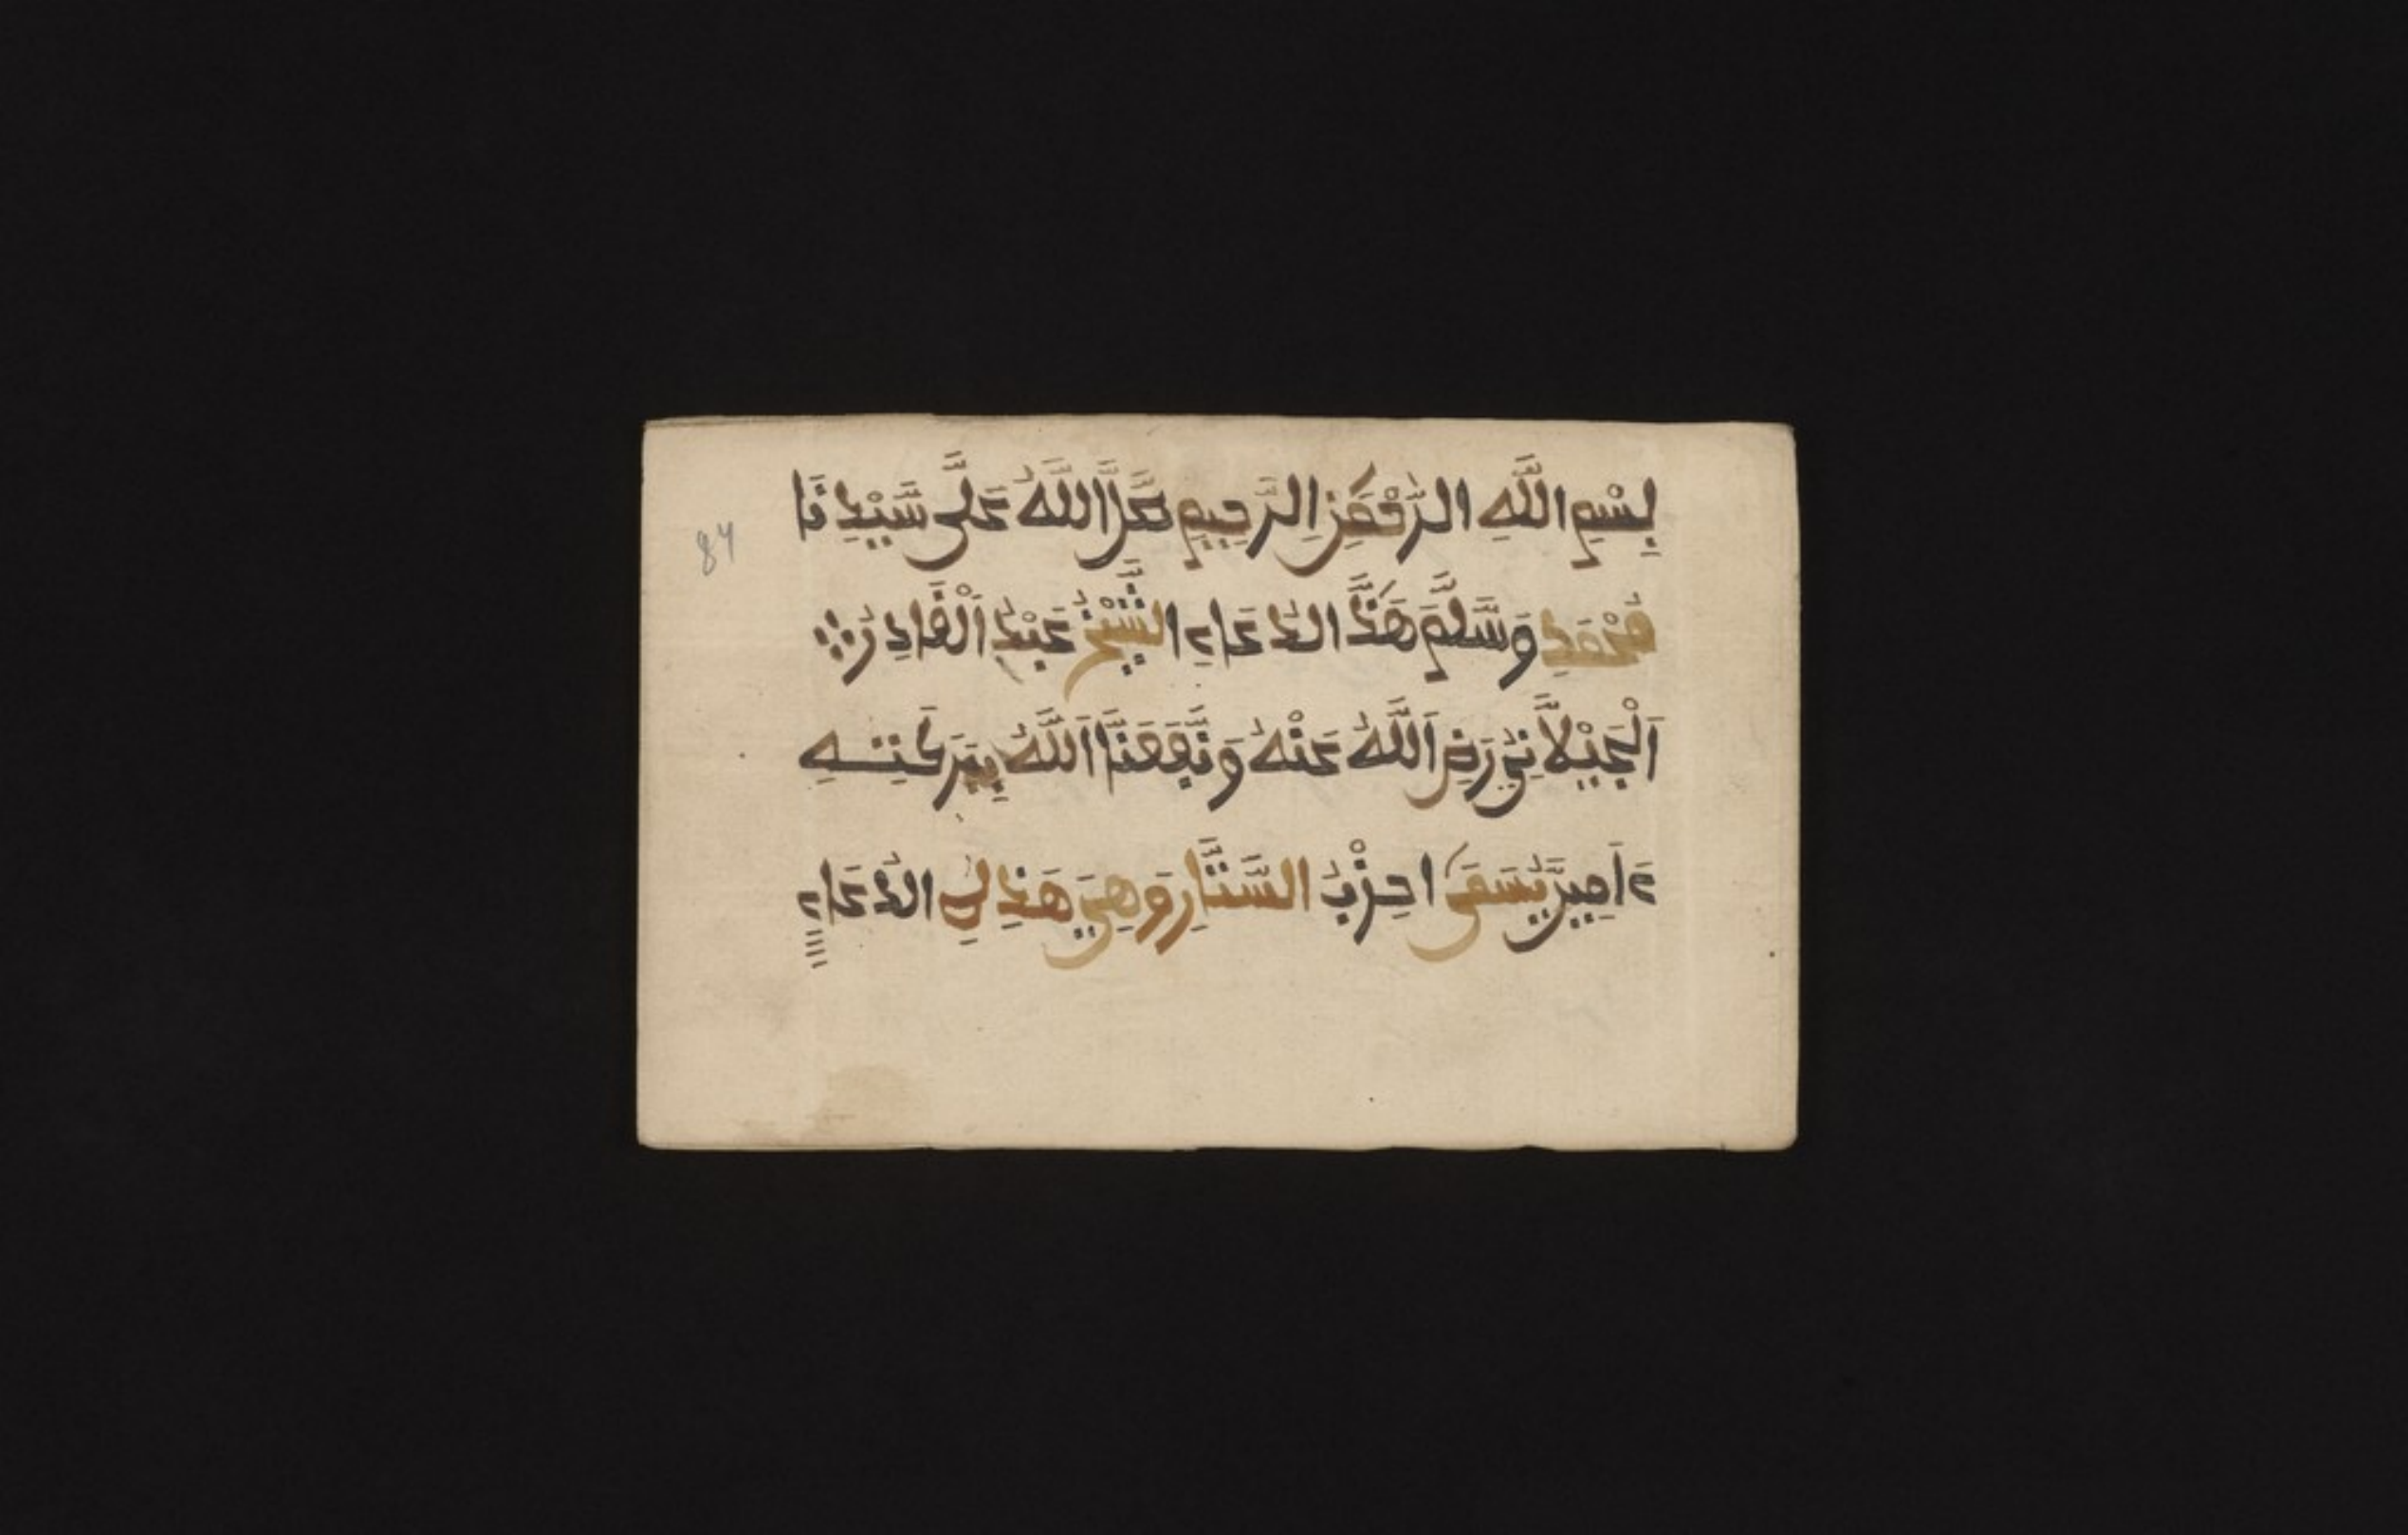 بِسْمِ اللَّهِ الرَّحْمَٰنِ الرَّحِيمِ صَلَّ اللَّهُ عَلَى سَيِّدِنَا
مُحَمَّدٍ وَسَلَّمَ هَٰذَا الدُعَاءِ الشَّيْخُ عَبْدُ اَلْقَادِرُ
اَلْجَيْلَانِيُ رَضِيَ اَللَّهُ عَنْهُ وَنَفَعَنَا اَللَّهُ بِبَرَكَتِهِ
ءَامِين يُسَمَى احِزْبُ السَّتَّارِ وَهِيَ هَذِ الدُعَاءِ
84